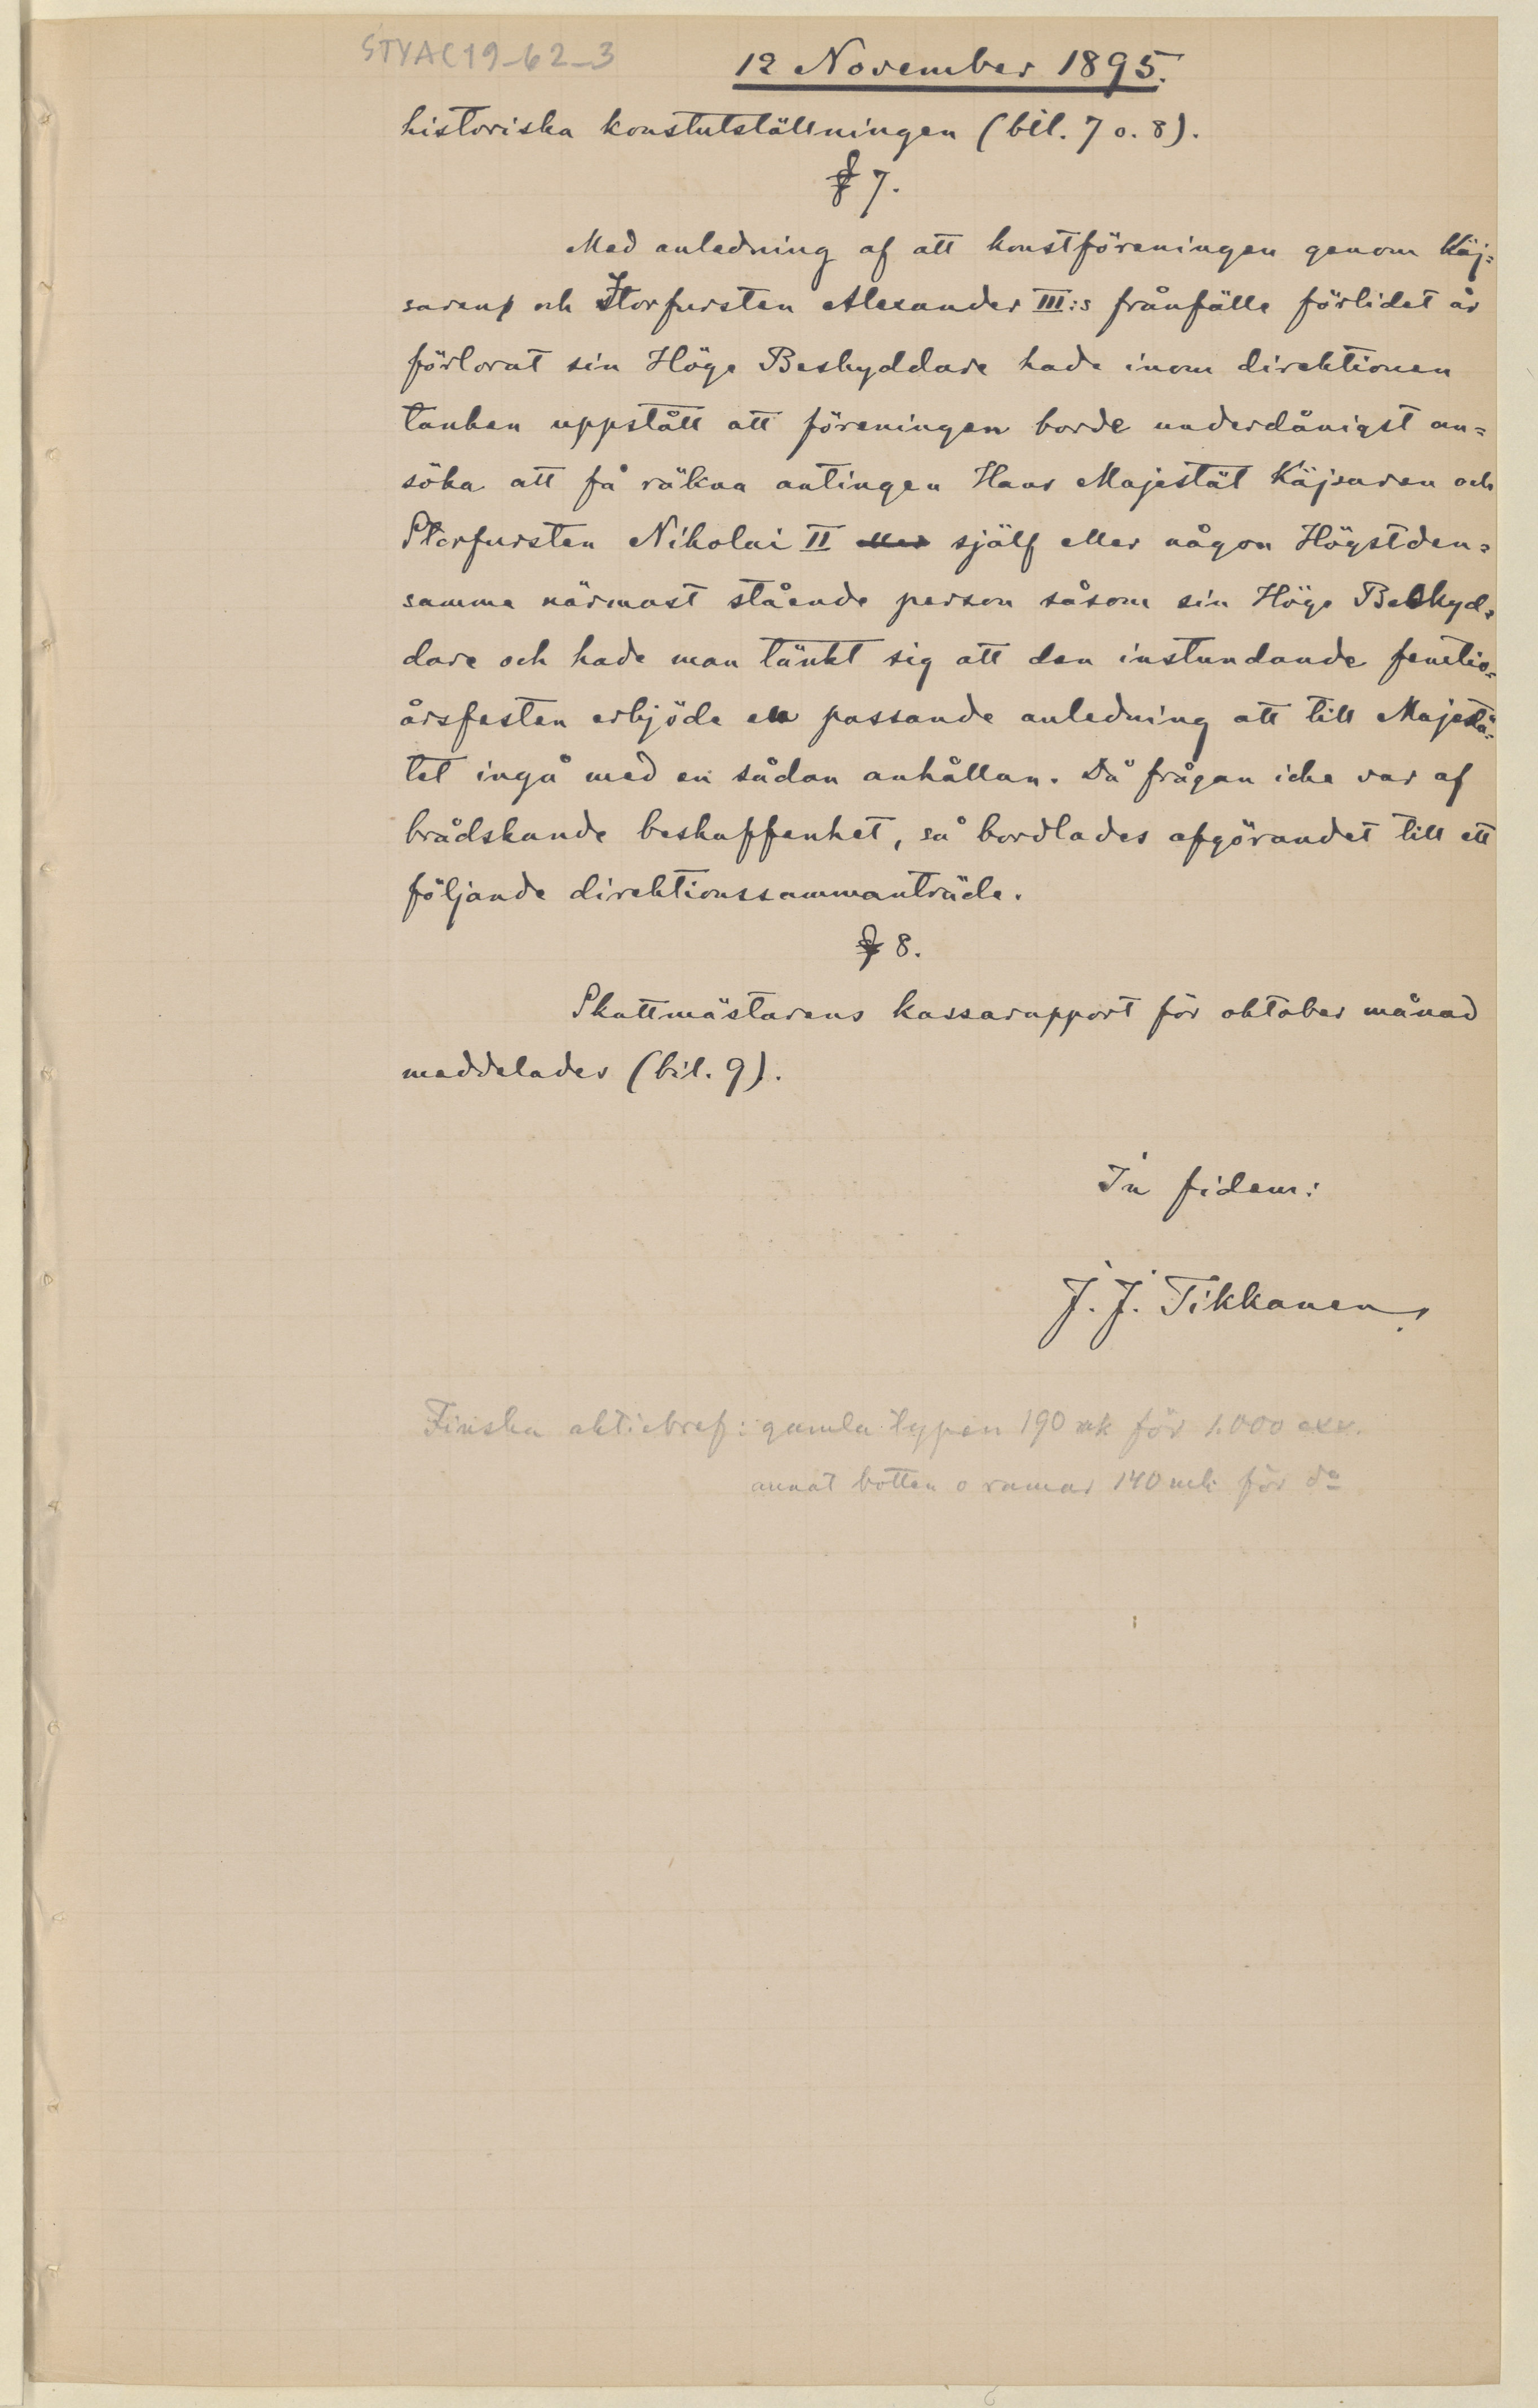 STYAC19_62_3
12 November 1895.
historiska konstutställningen (bil. 7 o. 8).
§ 7.
Med anledning af att konstföreningen genom Käj=
sarens och Storfursten Alexander III:s frånfälle förlidet år
förlorat sin Höge Beskyddare hade inom direktionen
tanken uppstått att föreningen borde underdånigst an=
söka att få räkna antingen Hans Majestät Käjsaren och
Storfursten Nikolai II eller själf eller någon Högstden=
samma närmast stående person såsom sin Höge Beskyd=
dare och hade man tänkt sig att den instundande femtio=
årsfesten erbjöde en passande anledning att till Majestä=
tet ingå med en sådan anhållan. Då frågan icke var af
brådskande beskaffenhet, så bordlades afgörandet till ett
följande direktionssammanträde.
§ 8.
Skattmästarens kassarapport för oktober månad
meddelades (bil. 9).
In fidem:
J. J. Tikkanen.
Finska aktiebref: gamla typen 190 mk för 1.000 exx.
annat botten o ramar 140 mk för do